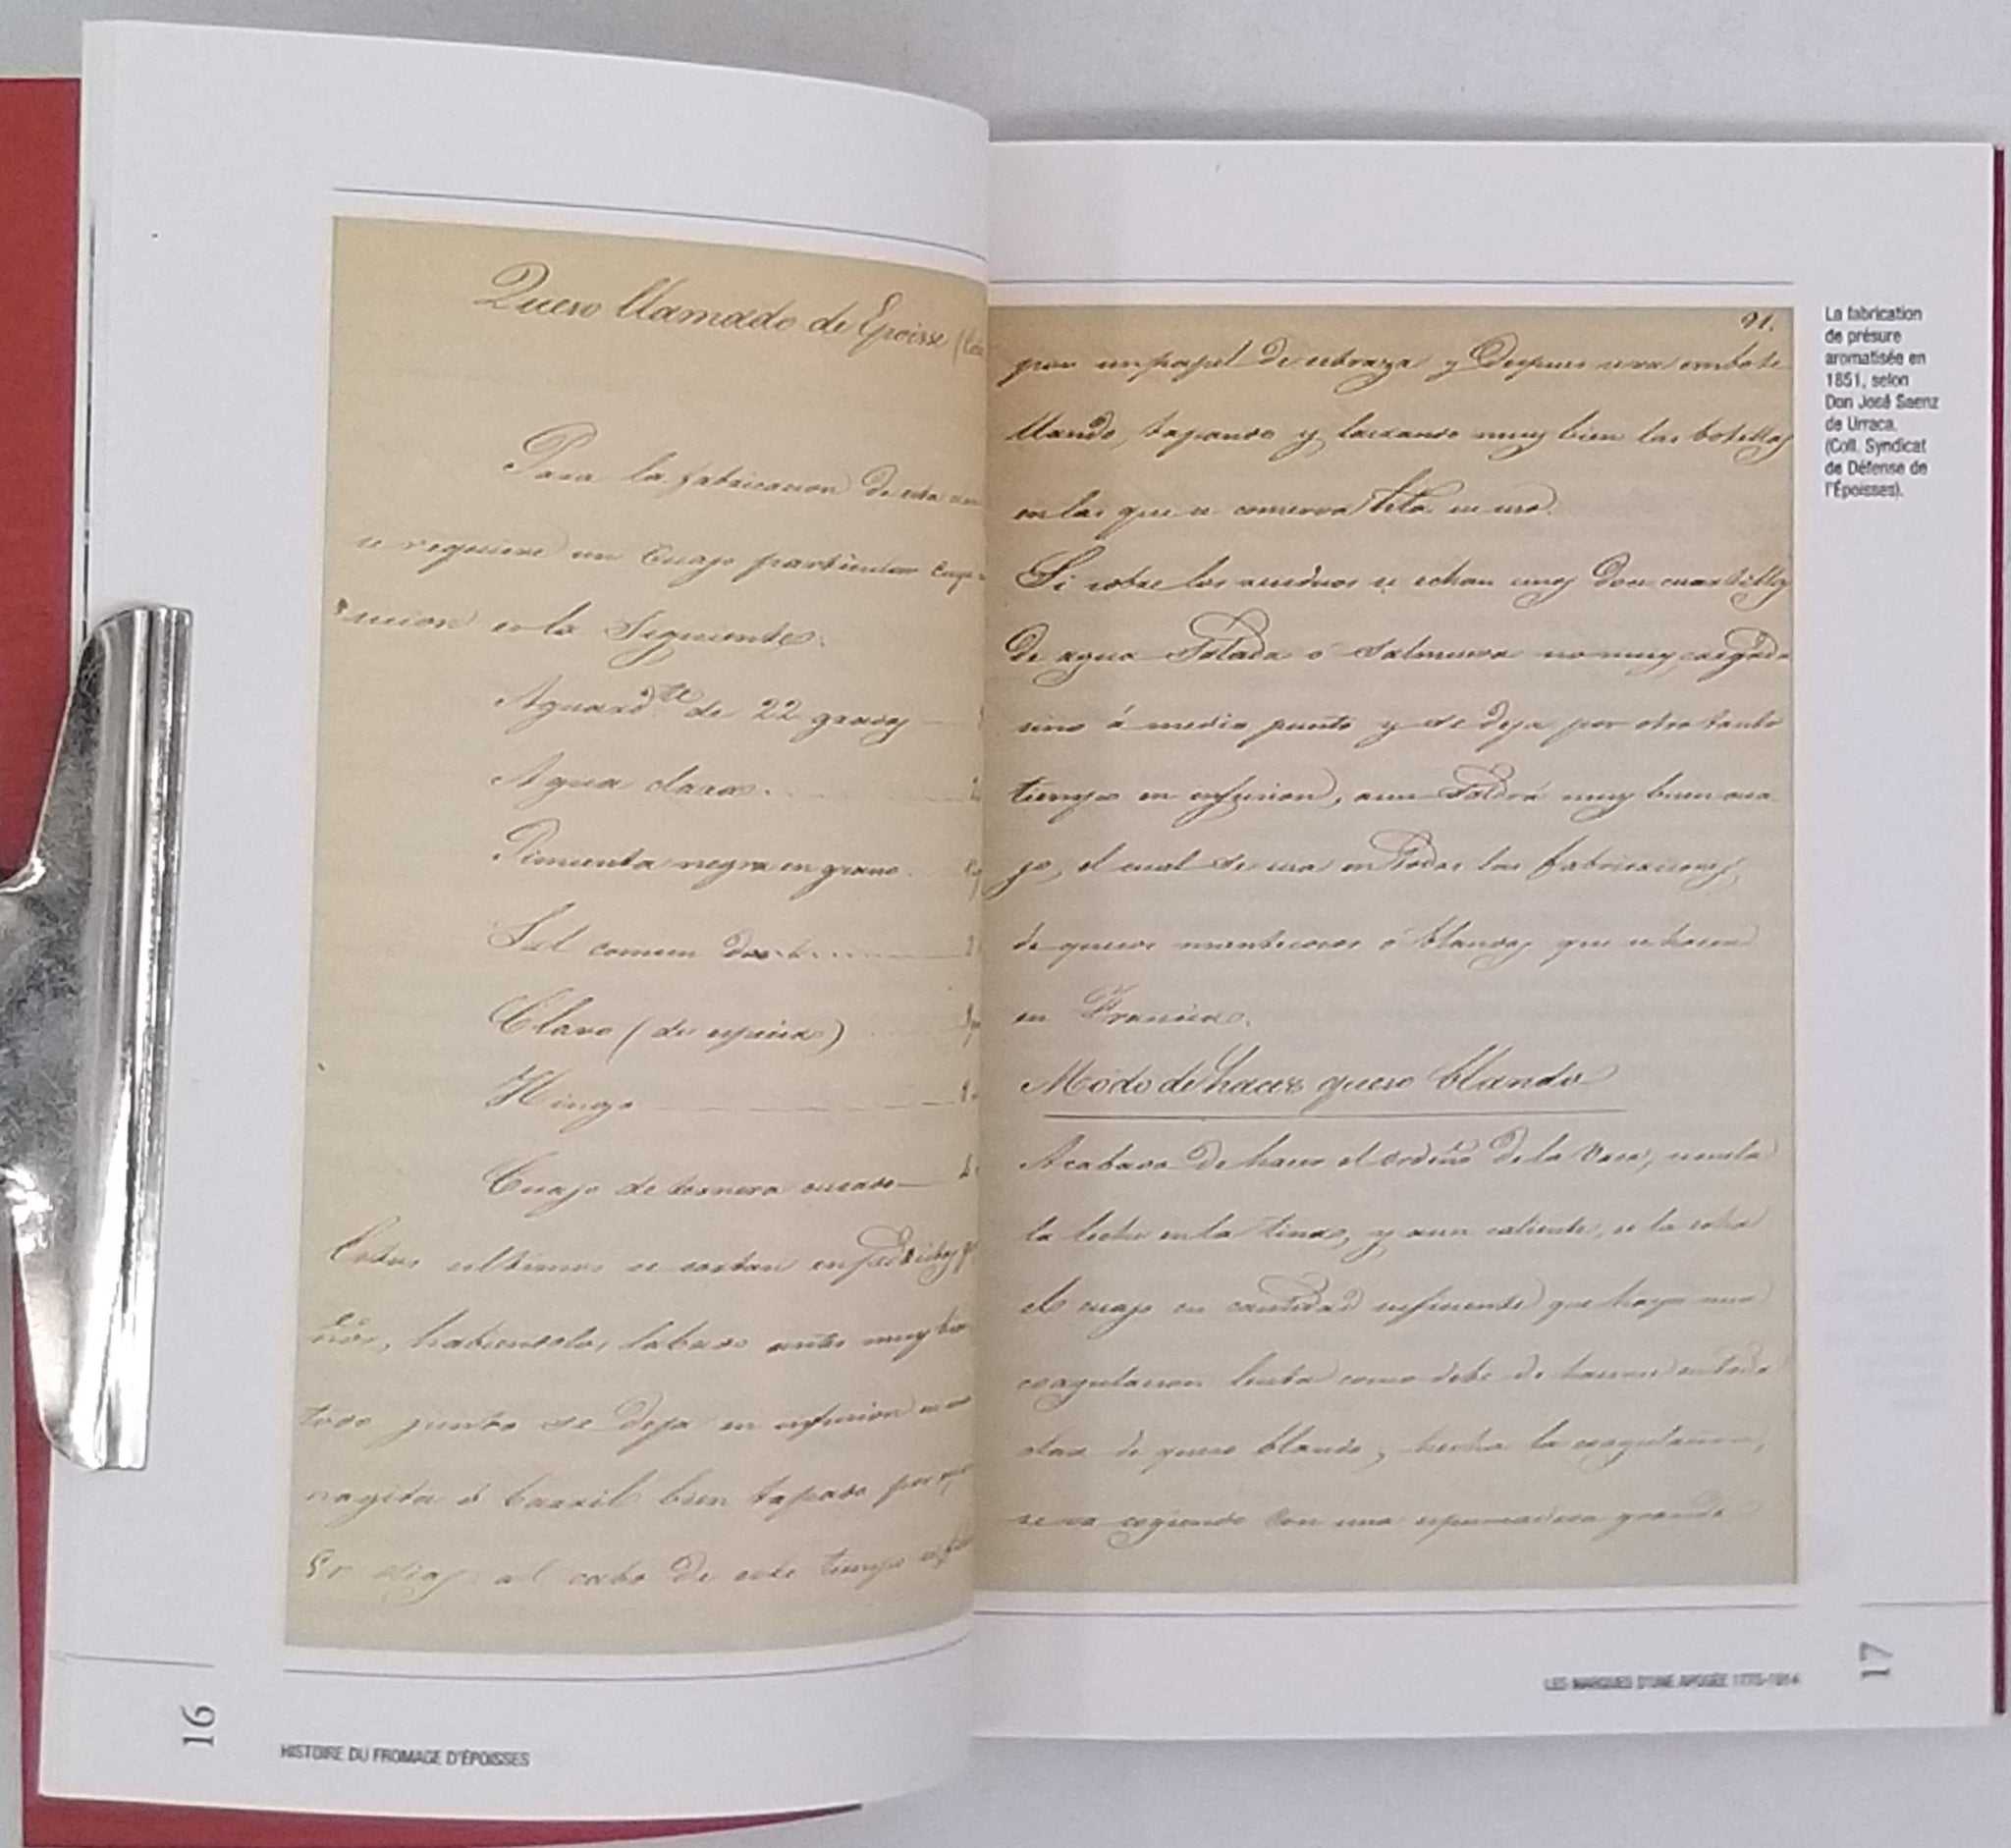 Queso llamado de Epoisse
Para la fabricacion de esta
se requiere un Cuajo particular cuya
es la Siguiente.
Aguard.te de 22 grados
Agua clara.
Pimienta negra en grano.
Sal comun
Clavo (de especia)
Hinojo
Cuajo de ternera secado
Estos ultimos se cortan en pedacitos
habiendolos labado antes muy bien
todo junto se deja en infusion en
ó barril bien tapado por
dias; al cabo de este tiempo
91.
por un papel de estraza y Despues se va embote
llando, tapando y lacrando muy bien las botellas
en las que se conserva hta. su uso.
Si sobre los residuos se echan unos doce cuartillos
de agua Salada ó Salmuera no muy cargada
sino á medio punto y se deja por otro tanto
tiempo en infusion, aun Saldrá muy buen cua
jo, el cual se usa en Todas las fabricaciones
de quesos mantecosos ó blandos que se hacen
en Francia.
Modo de hacer queso blando
Acabado de hacer el ordeño de la Vaca, se cuela
la leche en la tina, y aun caliente, se la echa
el cuajo en cantidad suficiente que haga una
coagulacion lenta como debe de hacerse en toda
clase de queso blando, hecha la coagulacion,
se va cogiendo con una espumadera grande
La fabrication
de présure
aromatisée en
1851, selon
Don José Saenz
de Urraca.
(Coll. Syndicat
de Défense de
l'Époisses).
16
HISTOIRE DU FROMAGE D'ÉPOISSES
LES MARQUES D'UNE APOGÉE 1775-1914
17